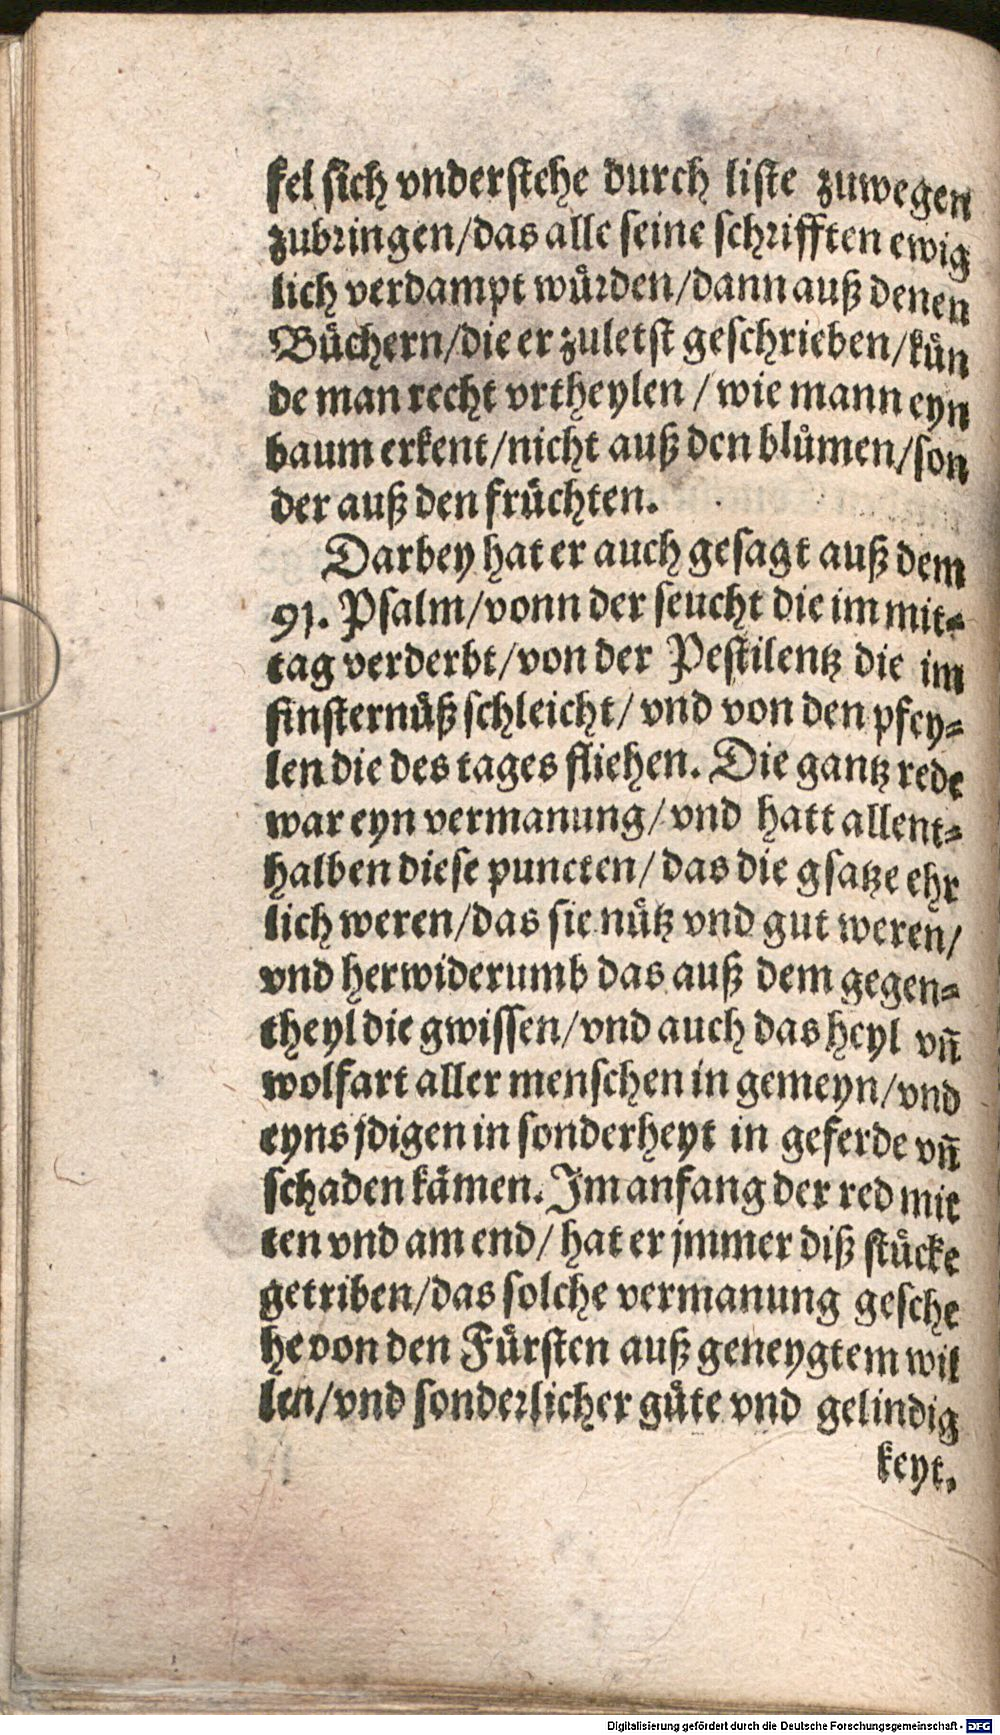 fel sich vnderstehe durch liste zuwegen
zubringen/das alle seine schrifften ewig
lich verdampt würden/dann auß denen
Büchern/die er zuletst geschrieben/kün
de man recht vrtheylen / wie mann eyn
baum erkent/nicht auß den blůmen/son
der auß den früchten.
Darbey hat er auch gesagt auß dem
91. Psalm/vonn der seucht die im mit⸗
tag verderbt/von der Pestilentz die im
finsternüß schleicht/ vnd von den pfey⸗
len die des tages fliehen. Die gantz rede
war eyn vermanung/ vnd hatt allent⸗
halben diese puncten/ das die gsatze ehr
lich weren/das sie nütz vnd gut weren/
vnd herwiderumb das auß dem gegen⸗
theyl die gwissen/vnd auch das heyl vñ
wolfart aller menschen in gemeyn/vnd
eyns jdigen in sonderheyt in geferde vñ
schaden kämen. Im anfang der red mit
ten vnd am end/ hat er jmmer diß stücke
getriben/das solche vermanung gesche
he von den Fürsten auß geneygtem wil
len/vnd sonderlicher güte vnd gelindig
keyt.
Digitalisierung gefördert durch die Deutsche Forschungsgemeinschaft - DFG